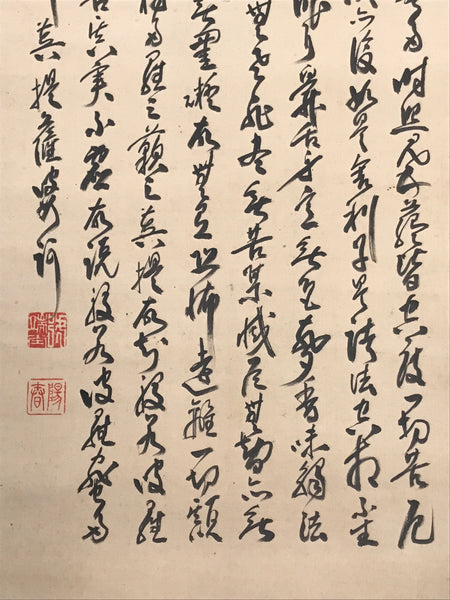 多時照見五蘊皆空度一切苦厄
亦復如是舍利子是諸法空相不生
眼耳鼻舌身意無色聲香味觸法
無老死盡無苦集滅道無智亦無
無罣礙故無有恐怖遠離一切顛
多羅三藐三菩提故知般若波羅
苦真實不虛故說般若波羅蜜多
菩提薩婆訶
陽春